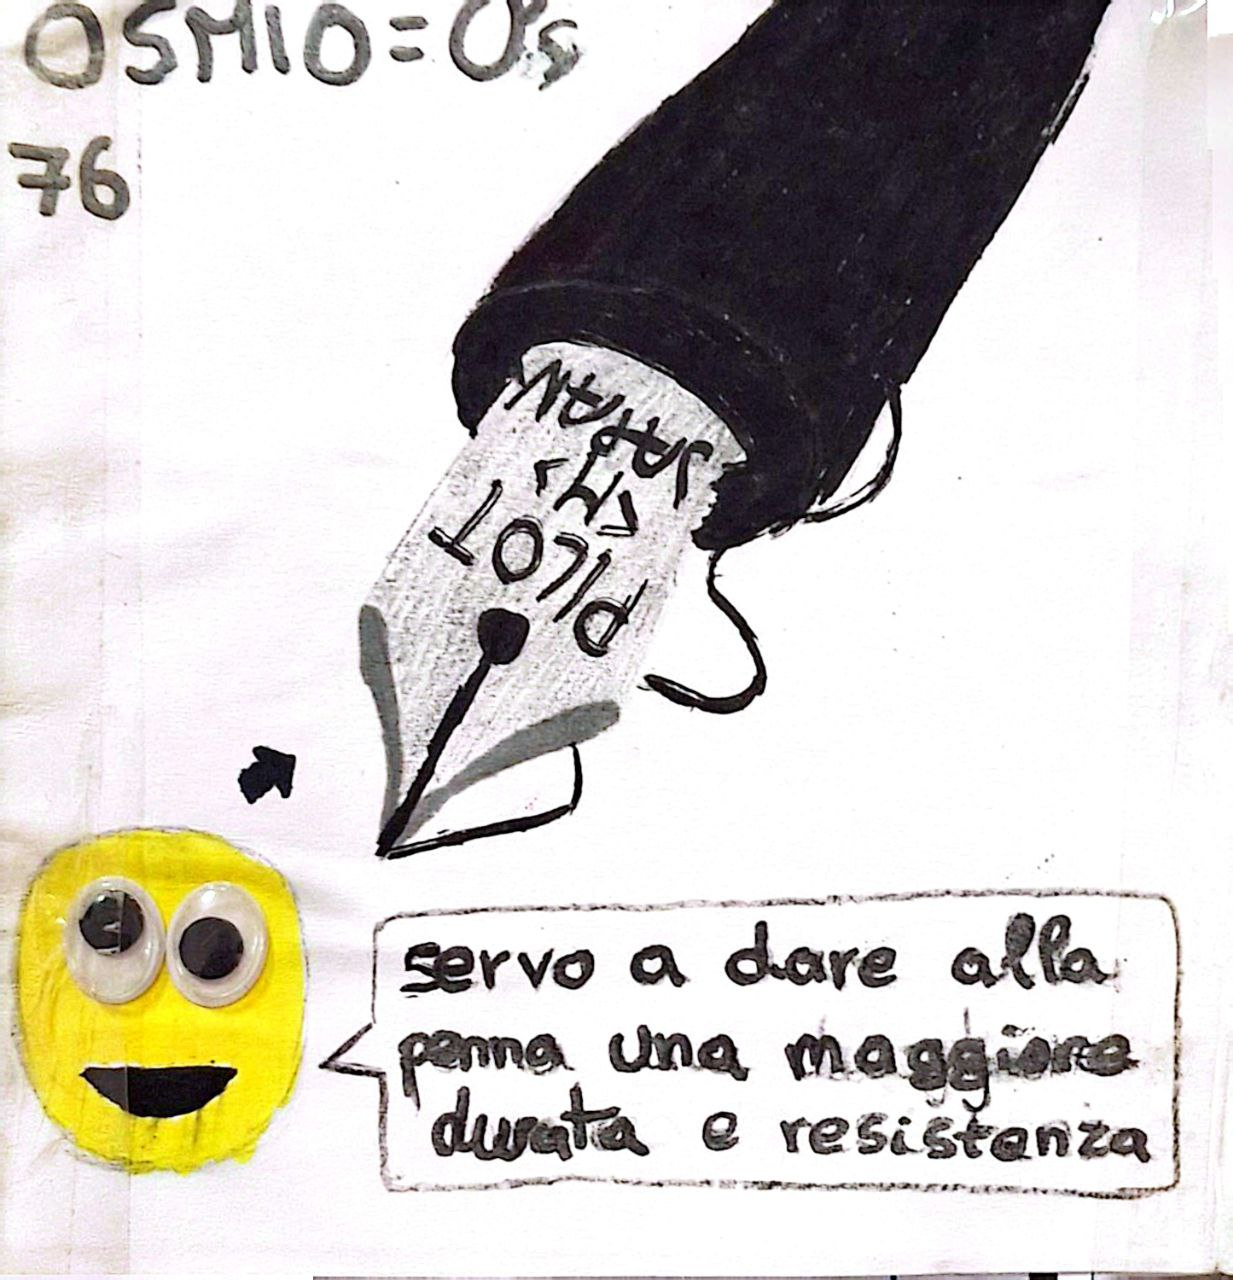 OSMIO=Os
76
JAPAN
<M>
PILOT
servo a dare alla
penna una maggiore
durata e resistenza